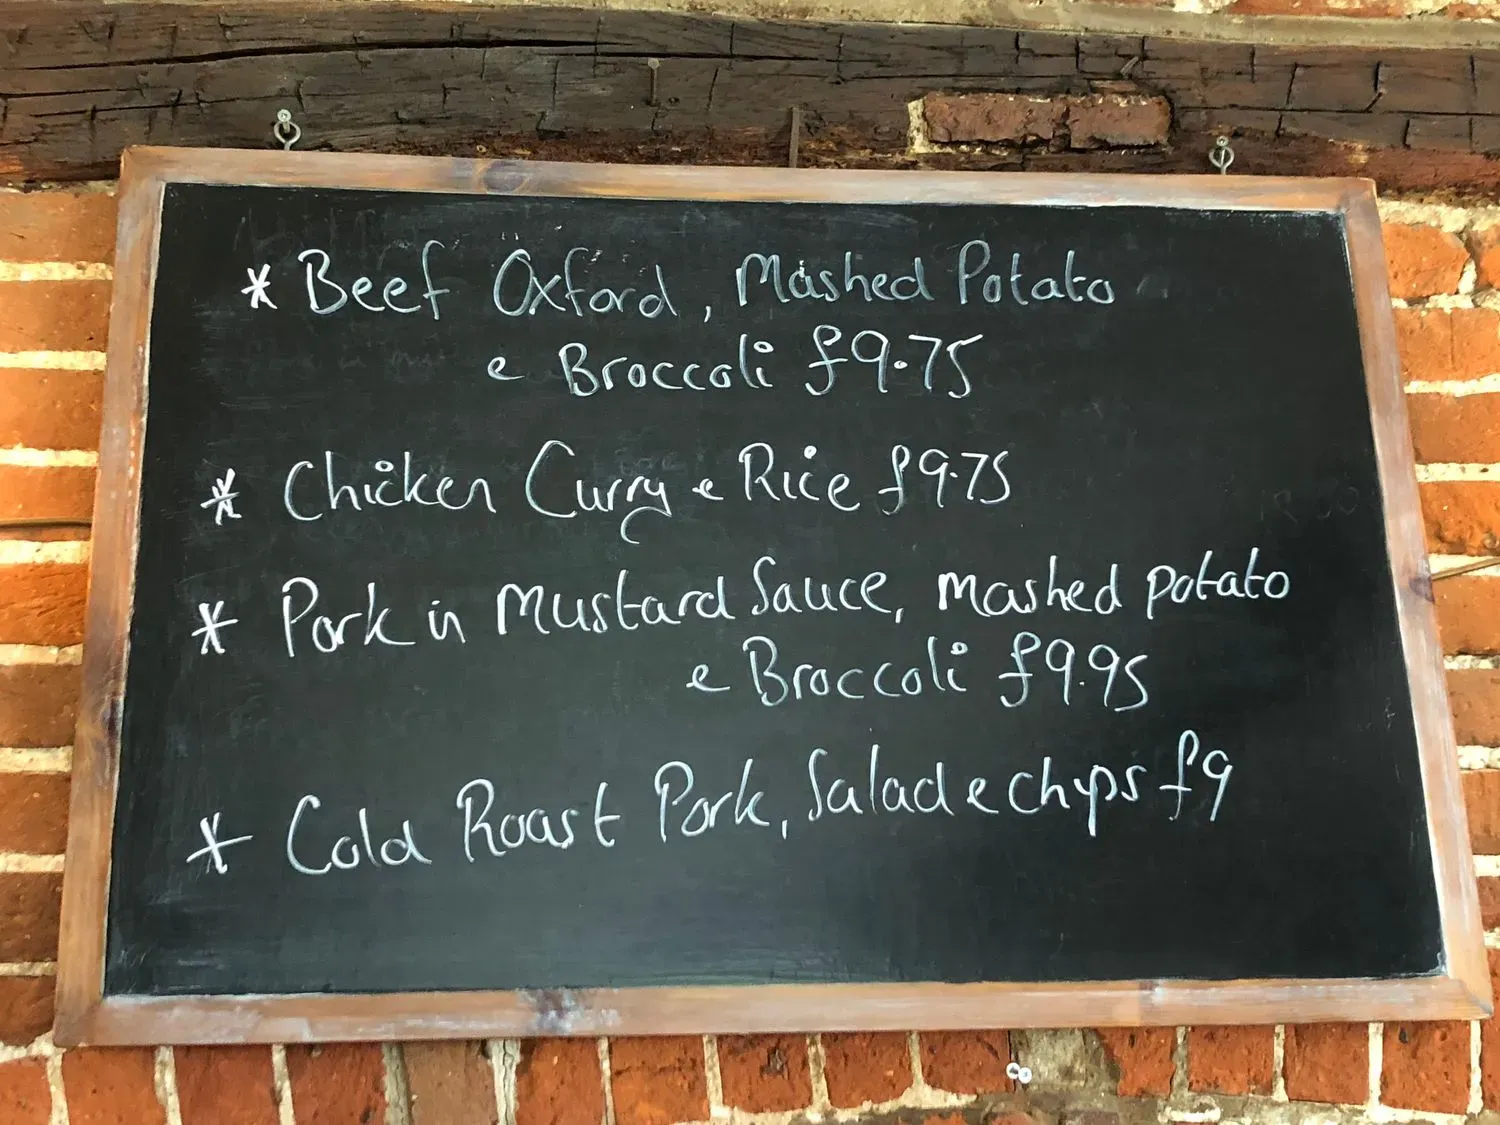 * Beef Oxford, Mashed Potato
e Broccoli £9.75
* Chicken Curry e Rice £9.75
* Pork in Mustard Sauce, Mashed Potato
e Broccoli £9.95
* Cold Roast Pork, Salad e chips £9